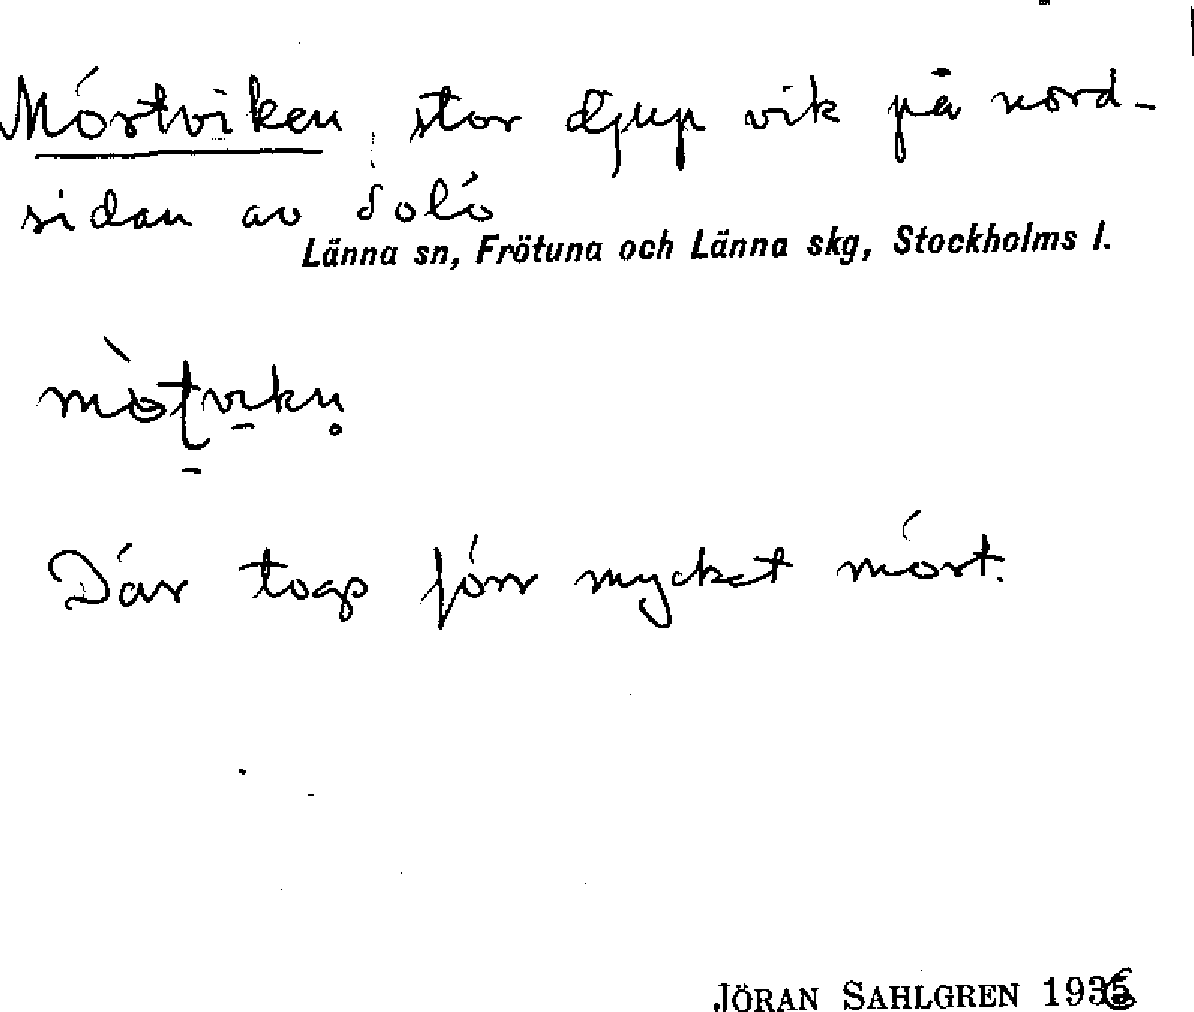 Mörtviken, stor djup vik på nord-
sidan av Solö
Länna sn, Frötuna och Länna skg, Stockholms l.
mòtvikn̥
Där togs förr mycket mört.
JÖRAN SAHLGREN 1936